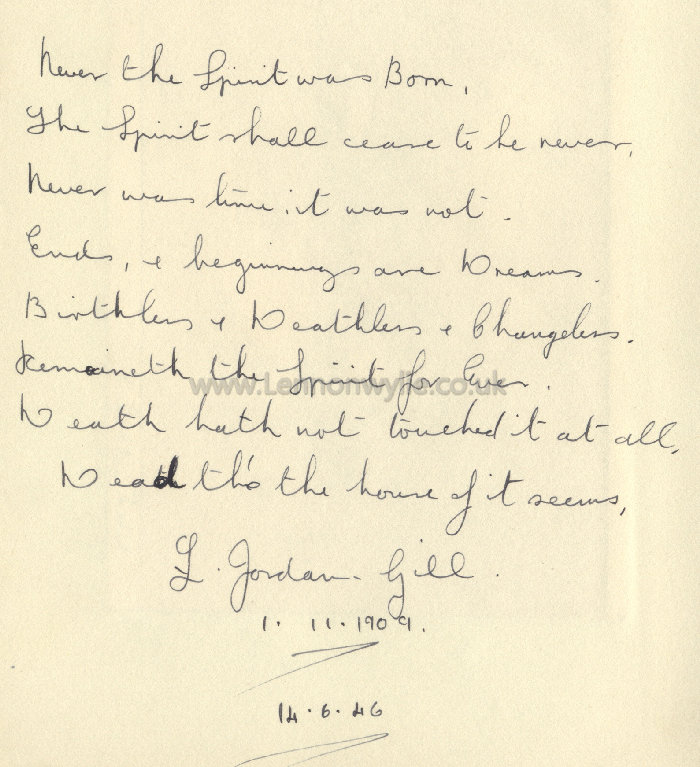 Never the Spirit was Born,
The Spirit shall cease to be never,
Never was time; it was not.
Ends, & beginnings are Dreams.
Birthless & Deathless & Changeless.
Remaineth the Spirit for Ever.
www.Lennonwylie.co.uk
Death hath not touched it at all,
Dead tho' the house of it seems,
L. Jordan-Gill.
1. 11. 1909.
14.6.46